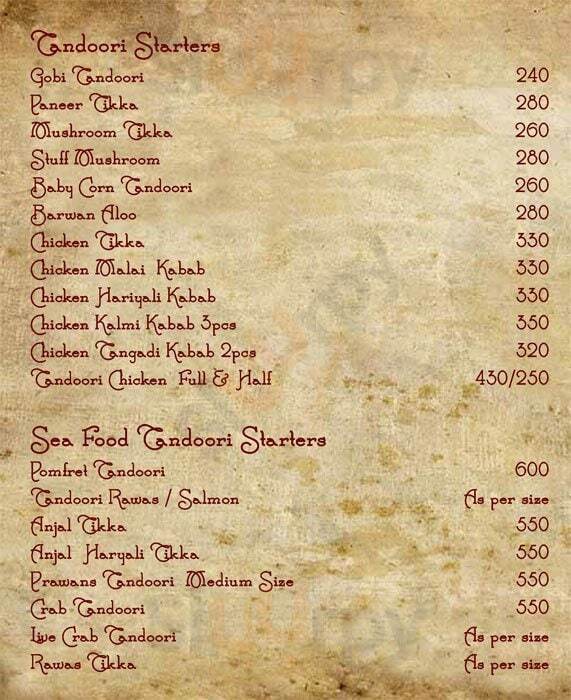 Tandoori Starters
Gobi Tandoori 240
Paneer Tikka 280
Mushroom Tikka 260
Stuff Mushroom 280
Baby Corn Tandoori 260
Barwan Aloo 280
Chicken Tikka 330
Chicken Malai Kabab 330
Chicken Hariyali Kabab 330
Chicken Kalmi Kabab 3pcs 350
Chicken Tangadi Kabab 2pcs 320
Tandoori Chicken Full & Half 430/250
Sea Food Tandoori Starters
Pomfret Tandoori 600
Tandoori Rawas / Salmon As per size
Anjal Tikka 550
Anjal Haryali Tikka 550
Prawans Tandoori Medium Size 550
Crab Tandoori 550
Live Crab Tandoori As per size
Rawas Tikka As per size